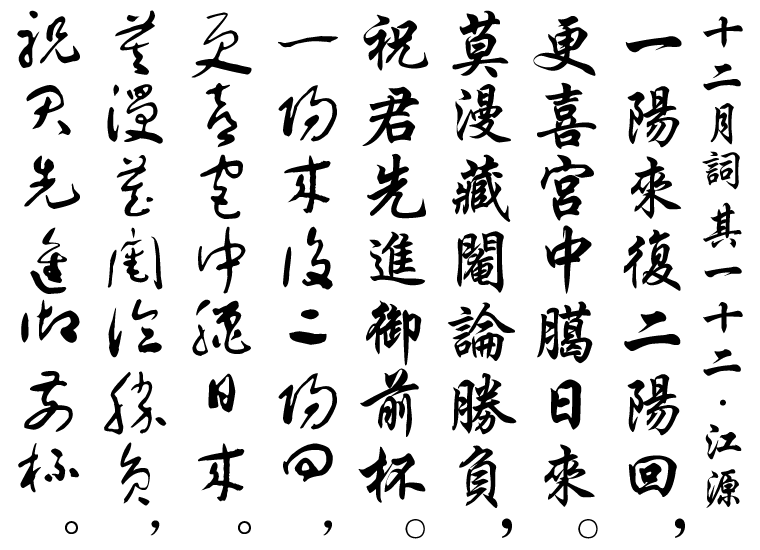 十二月詞其一十二·江源
一陽來復二陽回,
更喜宮中臈日來。
莫漫藏鬮論勝負,
祝君先進御前杯。
一陽來復二陽回,
更喜宮中臈日來。
莫漫藏鬮論勝負,
祝君先進御前杯。